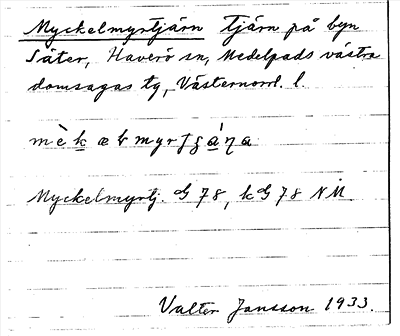 Myckelmyrtjärn tjärn på byn
Säter, Haverö sn, Medelpads västra
domsagas tg, Västernorrl. l.
Myckelmyrtj. G 78, kG 78 NM
Valter Jansson 1933.